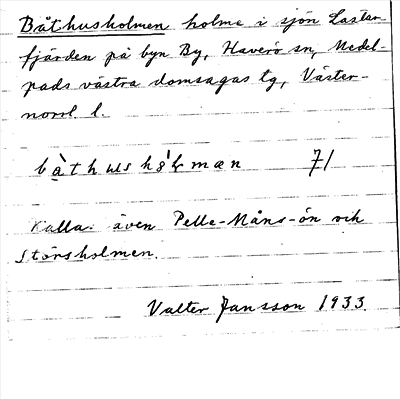 Båthusholmen holme i sjön Lastar-
fjärden på byn By, Haverö sn, Medel-
pads västra domsagas tg, Väster-
norrl l.
båthushọlmæn 71
Kallas även Pelle-Måns-ön och
Störsholmen.
Valter Jansson 1933.